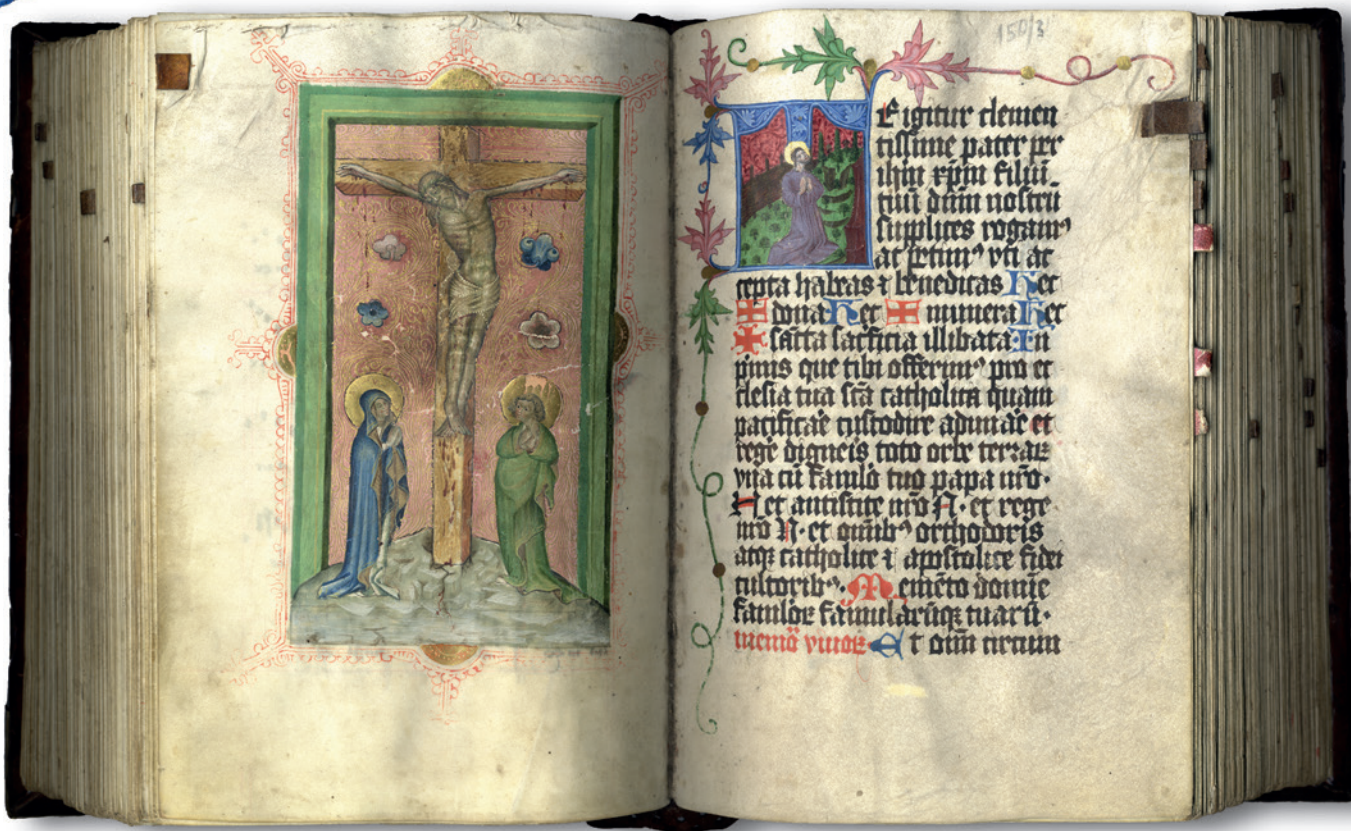 150/3
TE igitur clemen
tissime pater per
ihm̄ xp̄m filiū
tuū dn̄m nostrū
supplices rogamꝰ
ac petimꝰ vti ac
cepta habeas ⁊ benedicas Hec
✠ dona Hec ✠ munera Hec
✠ sācta sacͥficia illibata In
pͥmis que tibi offerimꝰ pro ec
clesia tua scā catholica quam
pacificāe custodire adunāe et
regē digneis toto orbe terraꝝ
vna cū famulo tuo papa nr̄o·
N et antistite nr̄o N· et rege
nr̄o N· et omībꝰ orthodoxis
atqꝫ catholice ⁊ apostolice fidei
cultoribꝰ· Memēto domīe
famuloꝝ famularūqꝫ tuarū·
memō viuoꝝ Et om̄ circum